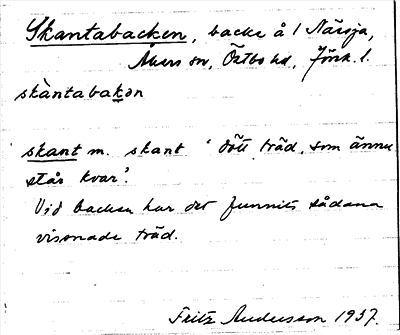 Skantabacken, backe å / Närsja,
Åkers sn, Östbo hd, Jönk. l.
skàntabakən
skant m. skant 'dött träd, som ännu
står kvar'.
Vid backen har det funnits sådana
vissnade träd.
Fritz Andersson 1937.